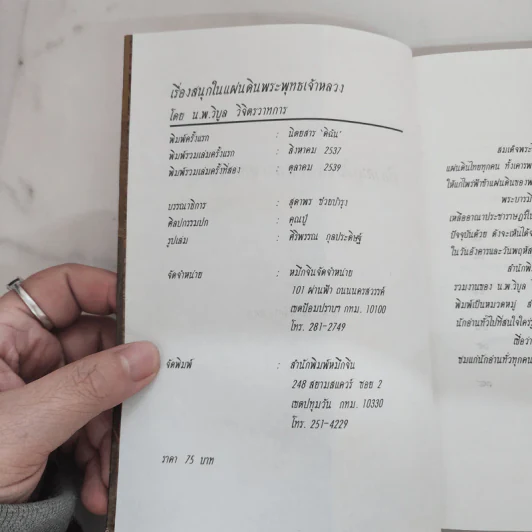 เรื่องสนุกในแผ่นดินพระพุทธเจ้าหลวง
โดย น.พ.วิบูล วิจิตรวาทการ
พิมพ์ครั้งแรก : นิตยสาร "ดิฉัน"
พิมพ์รวมเล่มครั้งแรก : สิงหาคม 2537
พิมพ์รวมเล่มครั้งที่สอง : ตุลาคม 2539
บรรณาธิการ : สุดาพร ช่วยบำรุง
ศิลปกรรมปก : คุณปู่
รูปเล่ม : ศิริพรรณ กุลประดิษฐ์
จัดจำหน่าย : หมึกจีนจัดจำหน่าย
101 ผ่านฟ้า ถนนนครสวรรค์
เขตป้อมปราบฯ กทม. 10100
โทร. 281-2749
จัดพิมพ์ : สำนักพิมพ์หมึกจีน
248 สยามสแควร์ ซอย 2
เขตปทุมวัน กทม. 10330
โทร. 251-4229
ราคา 75 บาท
สมเด็จพระ
แผ่นดินไทยทุกคน ทั้งเคารพ
ให้แก่ไพร่ฟ้าข้าแผ่นดินของพ
พระบารมี
เหลืออาณาประชาราษฎร์ใน
ปัจจุบันด้วย ดังจะเห็นได้จ
ในวันอังคารและวันพฤหัส
สำนักพิม
รวมงานของ น.พ.วิบูล
พิมพ์เป็นหมวดหมู่
นักอ่านทั่วไปที่สนใจใคร่รู้
เชื่อว่า
ชมแก่นักอ่านทั่วทุกคน